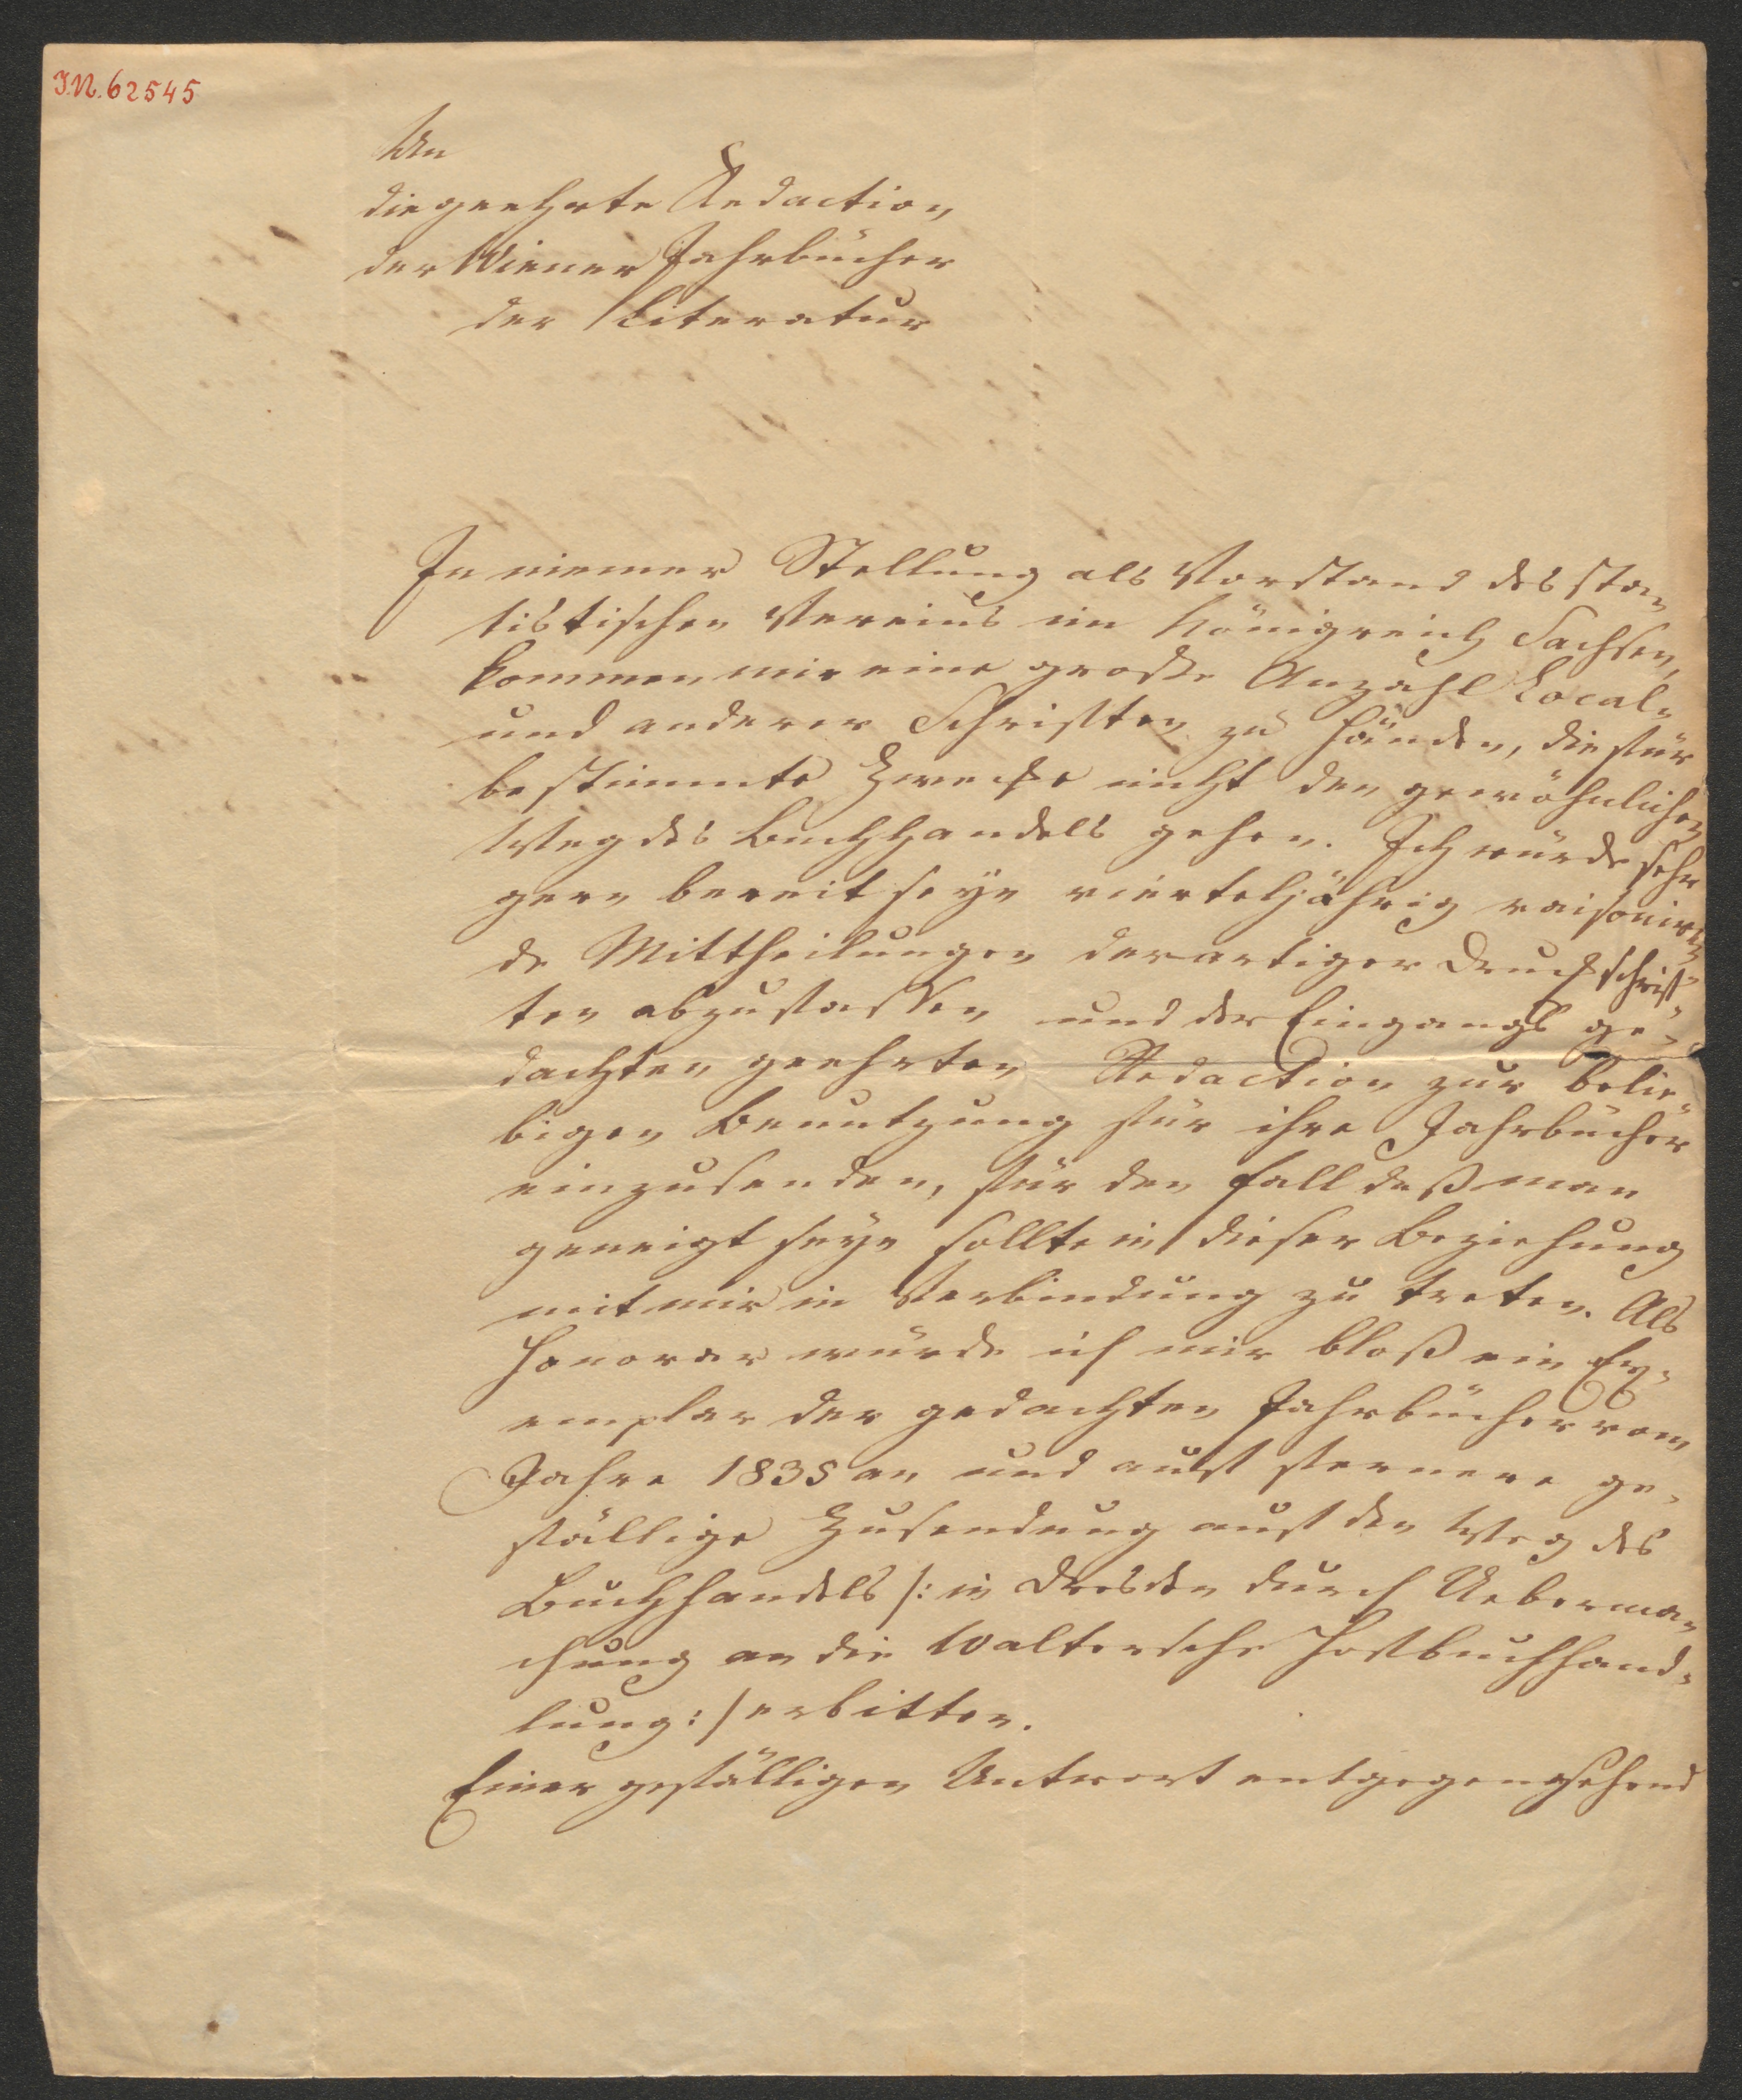 J.N. 62545
An
die geehrte Redaction
der Wiener Jahrbücher
der Literatur
In meiner Stellung als Vorstand des sta-
tistischen Vereins im Königreich Sachsen,
kommen mir eine große Anzahl Local-
und anderer Schriften zu Händen, die für
bestimmte Zwecke nicht den gewöhnlichen
Weg des Buchhandels gehen. Ich würde sehr
gern bereit seyn vierteljährig raisoniren-
de Mittheilungen derartiger Druckschrif-
ten abzufassen und der Eingangs ge-
dachten geehrten Redaction zur belie-
bigen Benutzung für ihre Jahrbücher
einzusenden, für den Fall daß man
geneigt seyn sollte in dieser Beziehung
mit mir in Verbindung zu treten. Als
Honorar würde ich mir bloß ein Ex-
emplar der gedachten Jahrbücher vom
Jahre 1835 an und auf fernere ge-
fällige Zusendung auf den Weg des
Buchhandels /: in Dresden durch Ueberma-
chung an die Waltersche Hofbuchhand-
lung :/ erbitten.
Einer gefälligen Antwort entgegensehend